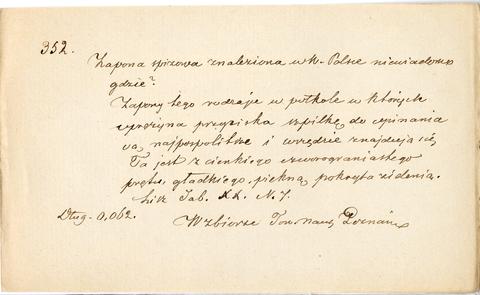 352.
Zapona spiżowa znaleziona w W. Polsce niewiadomo
gdzie?
Zapony tego rodzaju w półkole w których
sprężyna przyciska szpilkę do spinania
są najpospolitsze i wszędzie znajdują się.
Ta jest z cienkiego czworograniastego
prętu, gładkiego, piękną pokryta zidenią.
Lisz Tab. XX. N. 7.
Dług. 0,062.
W zbiorze Tow. nauk. Poznań.